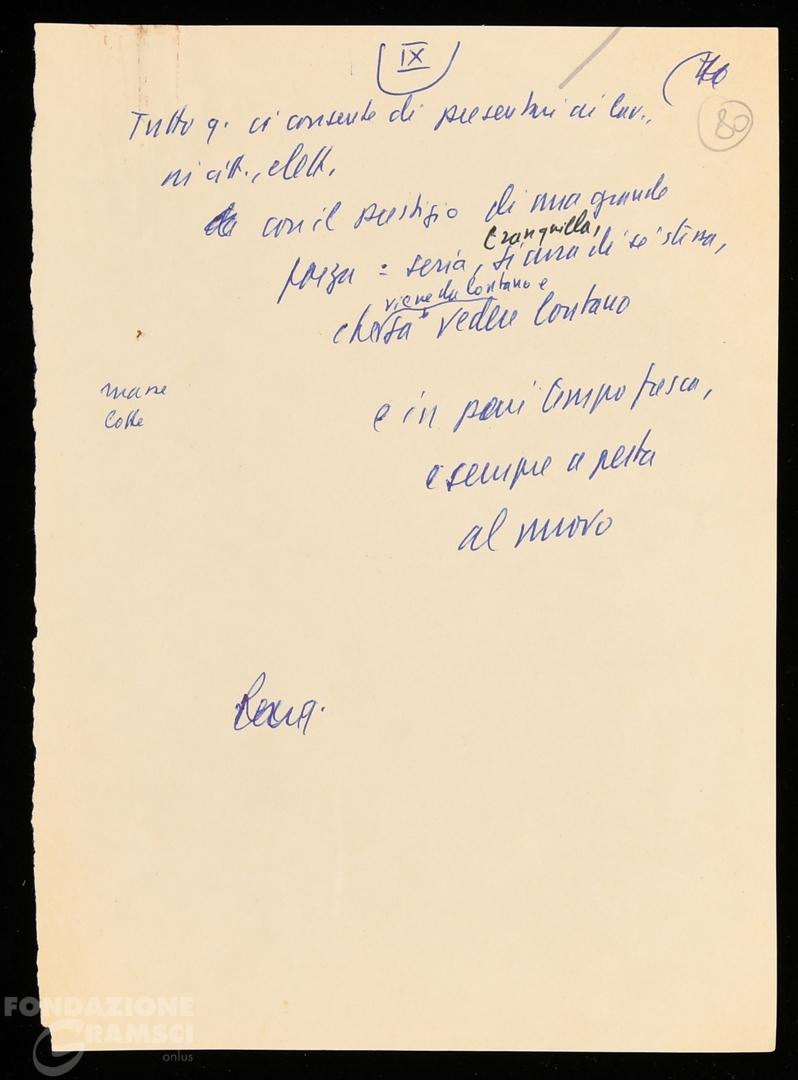 IX
80
Tutto q. ci consente di presentarci ai lav.,
ai citt., elett.,
con il prestigio di una grande
tranquilla,
forza = seria, sicura di se' stessa,
viene da lontano e
che sa vedere lontano
masse
lotte
e in pari tempo fresca,
e sempre aperta
al nuovo
FONDAZIONE
GRAMSCI
onlus